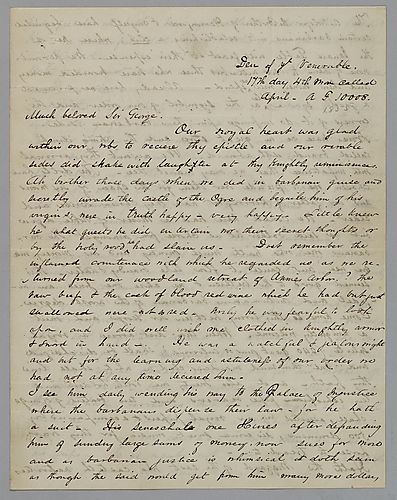 Den of yᵉ Venerable.
17th day 4th Mon called
April - A G 10008.
Much beloved Sir George.
Our royal heart was glad
within our ribs to recieve thy epistle and our
sides did shake with laughter at thy knightly reminiscences.
Ah brother those days when we did in barbarian guise and
invade the castle of the Ogre and beguile him of his
virgins, were in truth happy - very happy - Little knew
he what guests he did entertain nor their secret thoughts or
by the holy had slain us - Dost remember the
inflamed countenance with which he regarded us as we re-
turned from our woodland retreat of Annie Arbor? The
raw beef & the cask of blood red wine which he had
swallowed were not Verily he was fearful to look
upon, and I did well wish me clothed in knightly armor
& sword in hand -. He was a watchful & jealous knight
and but for the learning and astuteness of our order we
had not at any time decieved him -
I see him daily, wending his way to the Palace of Injustice
where the barbarians dispence their law - for he hath
a suit - His seneschal one Hines after defrauding
him of sundry large sums of money, now sues for more
and as barbarian justice is whimsical it doth seem
as though the said would get from him many more dollars,